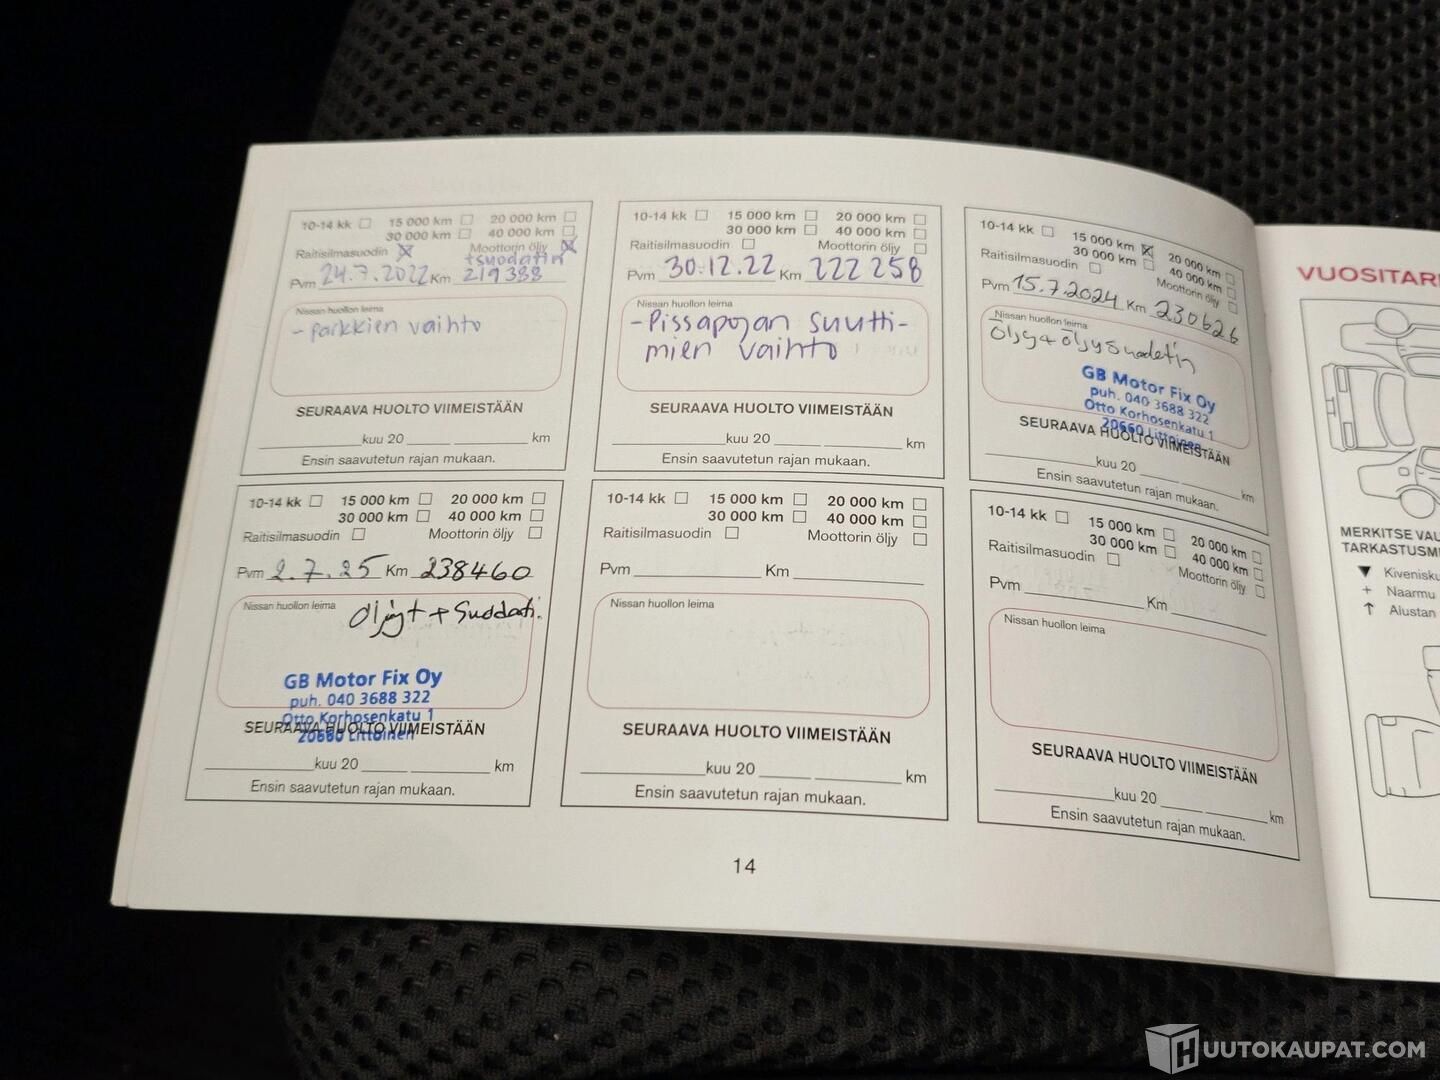 10-14 kk 15 000 km 20 000 km
30 000 km 40 000 km
Raitisilmasuodin Moottorin öljy
+suodatin
Pvm 24.7.2022 Km 219388
Nissan huollon leima
- parkkien vaihto
SEURAAVA HUOLTO VIIMEISTÄÄN
kuu 20 km
Ensin saavutetun rajan mukaan.
10-14 kk 15 000 km 20 000 km
30 000 km 40 000 km
Raitisilmasuodin Moottorin öljy
Pvm 30.12.22 Km 222 258
Nissan huollon leima
- Pissapojan suutti-
mien vaihto
SEURAAVA HUOLTO VIIMEISTÄÄN
kuu 20 km
Ensin saavutetun rajan mukaan.
10-14 kk 15 000 km 20 000 km
30 000 km 40 000 km
Raitisilmasuodin Moottorin öljy
Pvm 15.7.2024 Km 230626
Nissan huollon leima
öljy + öljysuodatin
GB Motor Fix Oy
puh. 040 3688 322
Otto Korhosenkatu 1
20660 Littoinen
SEURAAVA HUOLTO VIIMEISTÄÄN
kuu 20 km
Ensin saavutetun rajan mukaan.
10-14 kk 15 000 km 20 000 km
30 000 km 40 000 km
Raitisilmasuodin Moottorin öljy
Pvm 2.7.25 Km 238460
Nissan huollon leima
Öljyt + Suodati.
GB Motor Fix Oy
puh. 040 3688 322
Otto Korhosenkatu 1
20660 Littoinen
SEURAAVA HUOLTO VIIMEISTÄÄN
kuu 20 km
Ensin saavutetun rajan mukaan.
10-14 kk 15 000 km 20 000 km
30 000 km 40 000 km
Raitisilmasuodin Moottorin öljy
Pvm Km
Nissan huollon leima
SEURAAVA HUOLTO VIIMEISTÄÄN
kuu 20 km
Ensin saavutetun rajan mukaan.
10-14 kk 15 000 km 20 000 km
30 000 km 40 000 km
Raitisilmasuodin Moottorin öljy
Pvm Km
Nissan huollon leima
SEURAAVA HUOLTO VIIMEISTÄÄN
kuu 20 km
Ensin saavutetun rajan mukaan.
14
VUOSITAR
MERKITSE VAU
TARKASTUSM
Kivenisku
+ Naarmu
Alustan
HUUTOKAUPAT.COM